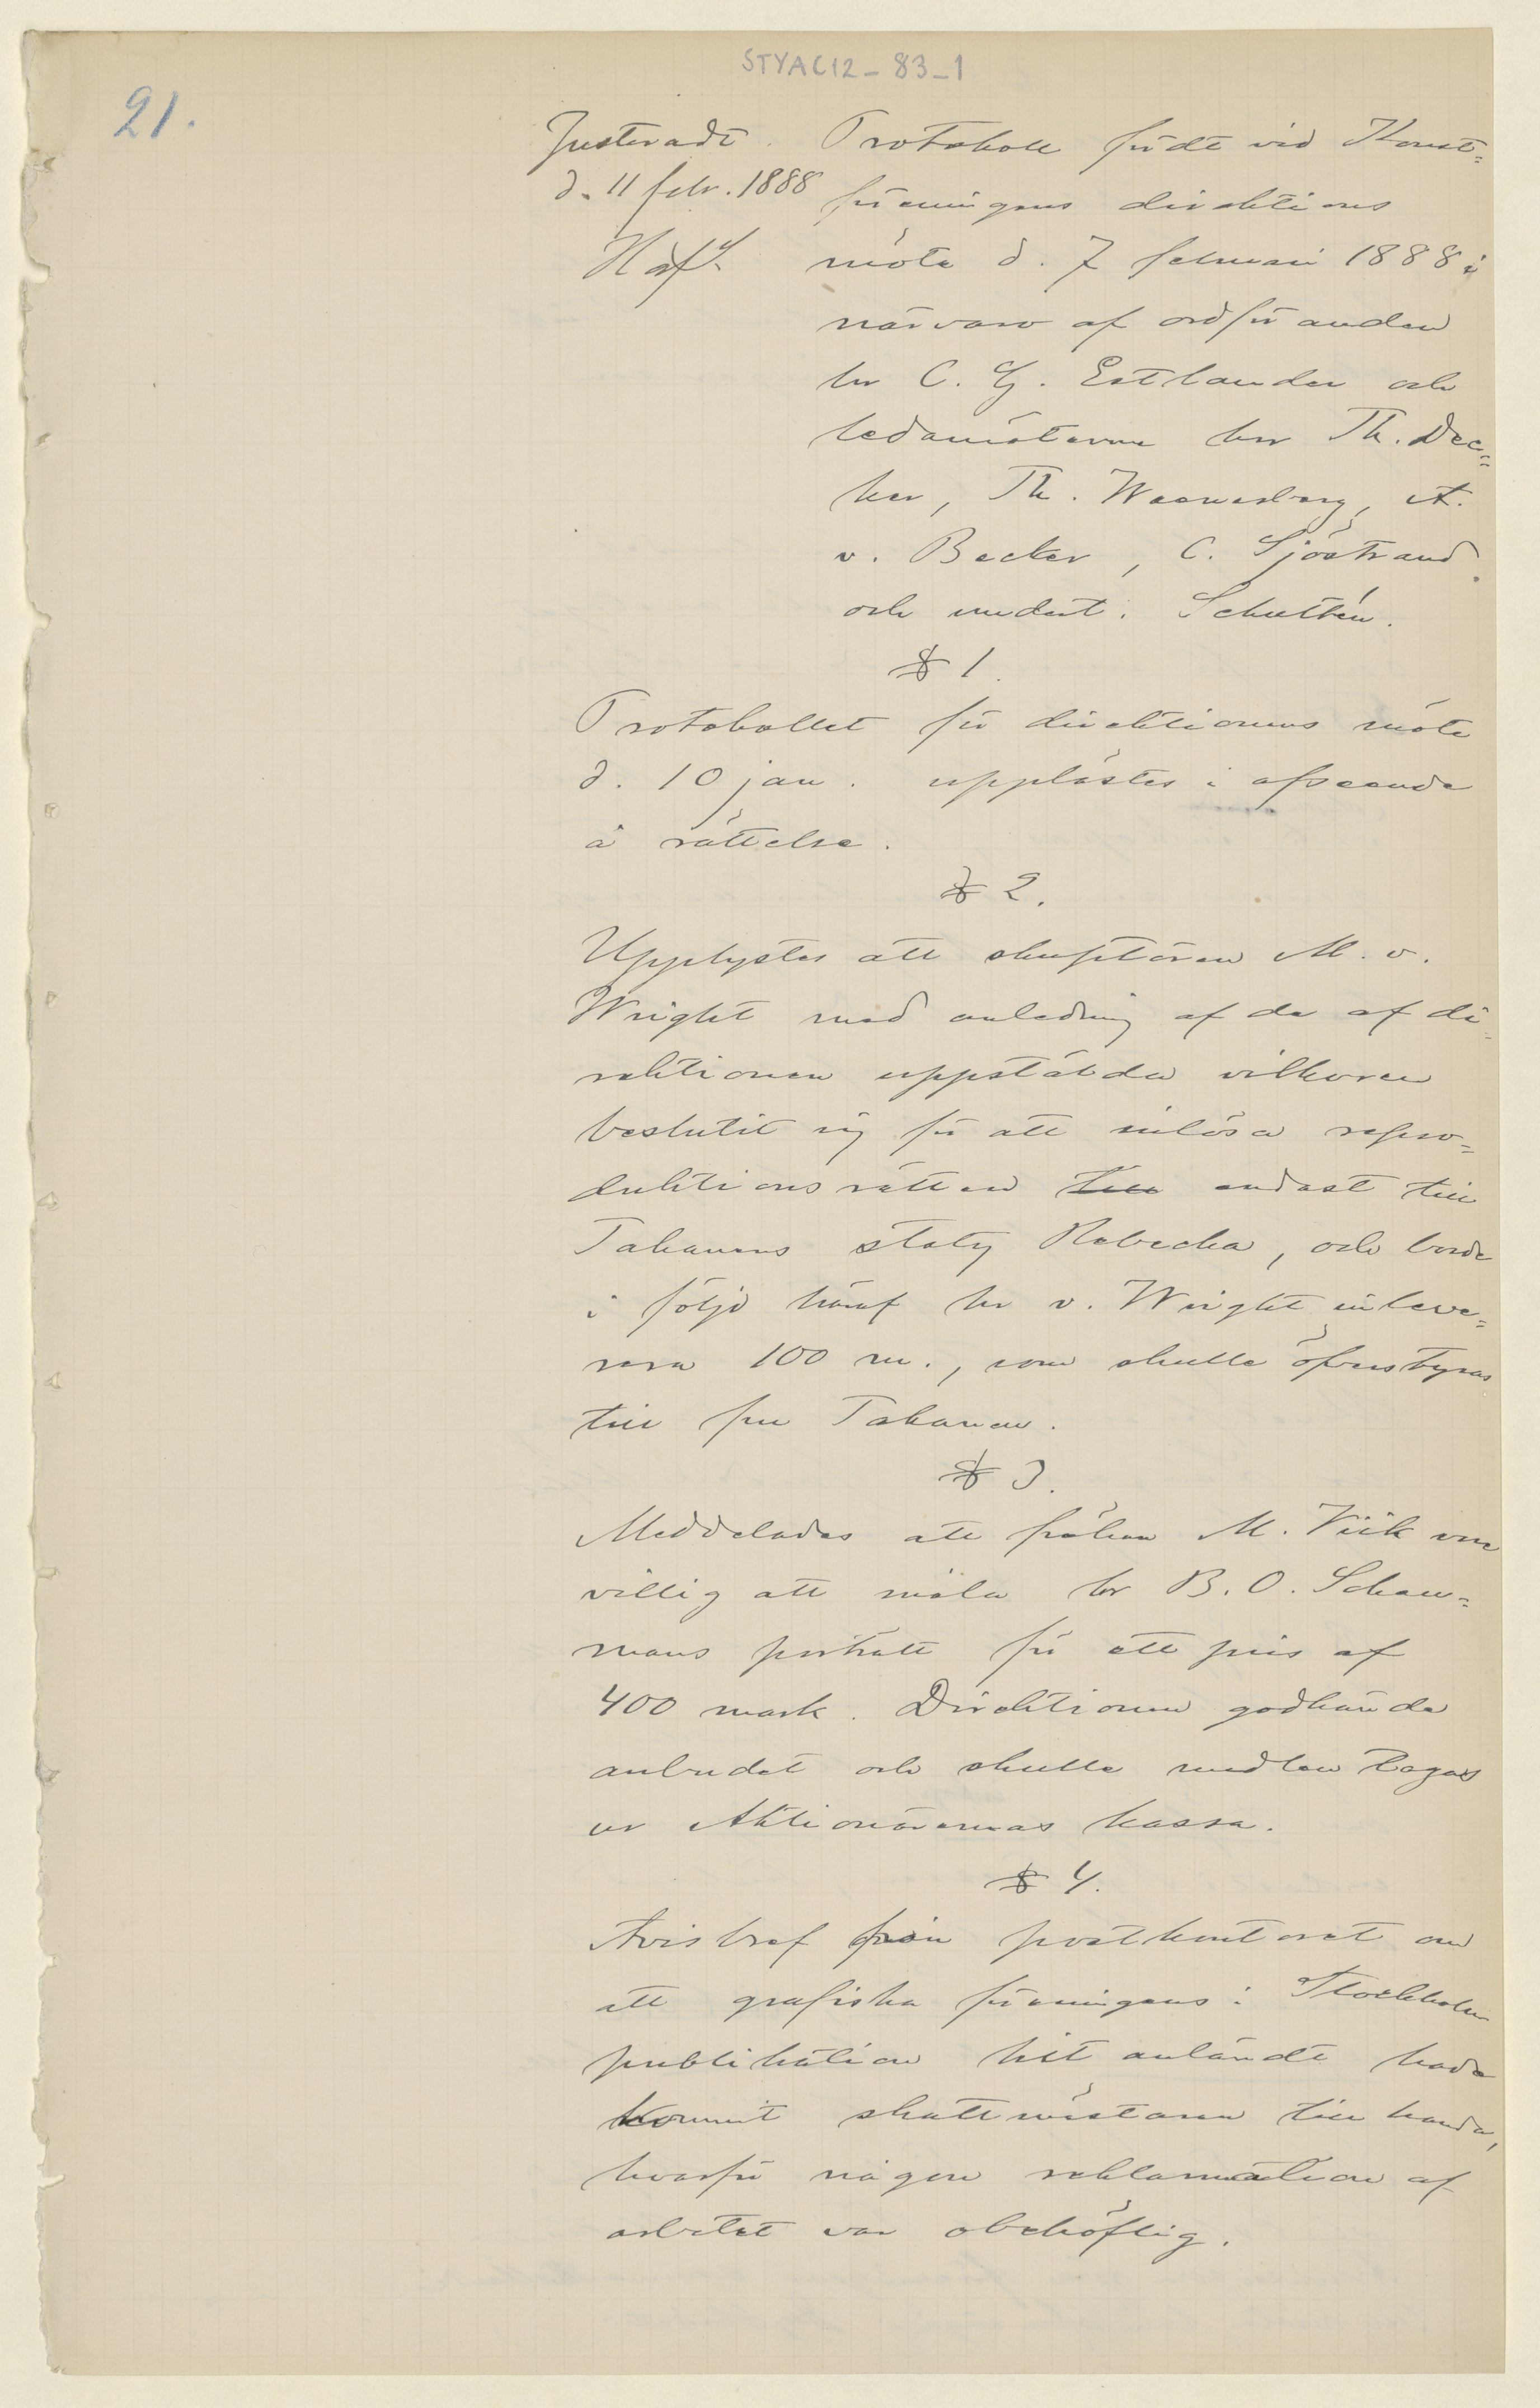 STYAC12-83-1
21.
Justeradt.
d. 11 febr. 1888
Protokoll fördt vid Konst=
föreningens direktions
möte d. 7 februari 1888 i
närvaro af ordföranden
hr C. G. Estlander och
ledamöterna hrr Th. Dec=
ker, Th. Waenerberg, A.
v. Becker, C. Sjöstrand
och undert. Schultén.
§ 1.
Protokollet för direktionens möte
d. 10 jan. upplästes i afseende
å rättelse.
§ 2.
Upplystes att skulptören M. v.
Wright med anledning af de af di=
rektionen uppstälda vilkoren
beslutit sig för att inlösa repro=
duktionsrätten till endast till
Takanens staty Rebecka, och borde
i följd häraf hr v. Wright inleve=
rera 100 m., som skulle öfverstyras
till fru Takanen.
§ 3.
Meddelades att fröken M. Viik var
villig att måla hr B. O. Schau=
mans porträtt för ett pris af
400 mark. Direktionen godkände
anbudet och skulle medlen tagas
ur Aktionärernas kassa.
§ 4.
Avisbref från postkontoret om
att grafiska föreningens i Stockholm
publikation hit anländt hade
kommit skattmästaren till handa,
hvarför någon reklamation af
arbetet var obehöflig.